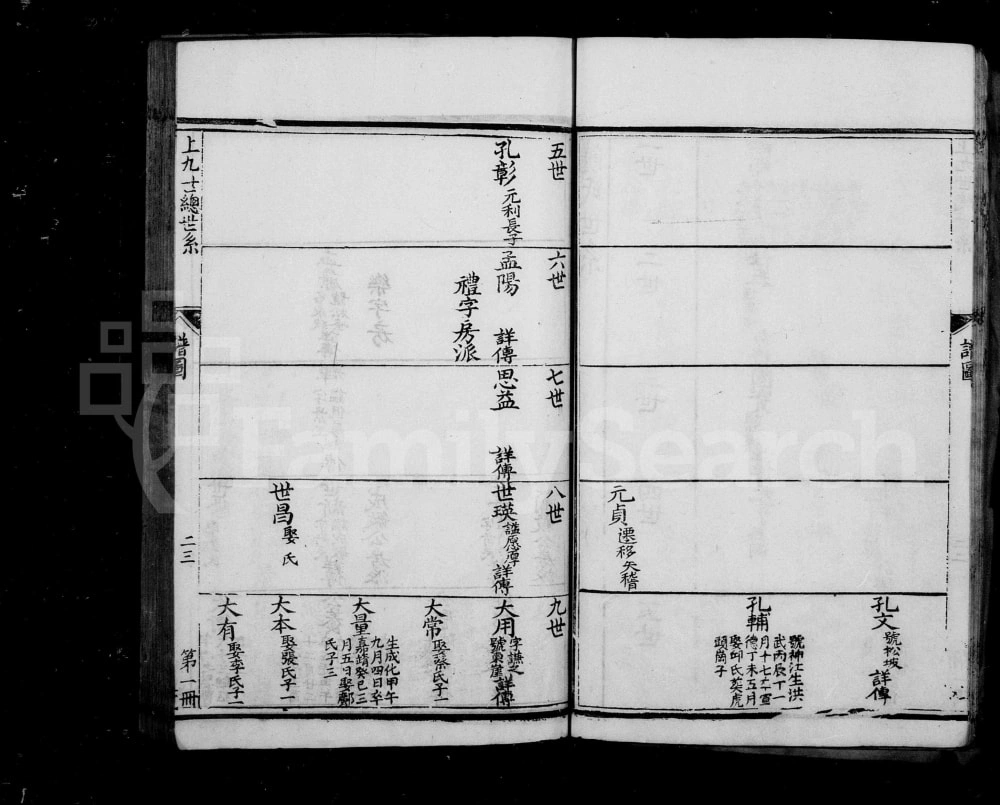 譜圖
元貞遷移失稽
孔文號松坡 詳傳
孔輔
號柳江生洪
武丙辰十一
月十七卒宣
德丁未五月
娶邱氏葬虎
頭崗子
五世
六世
七世
八世
九世
孔彰元利長子
孟陽 詳傳
思益 詳傳
世瑛謚愿厚 詳傳
大用
字譙之
號東崖詳傳
禮字房派
大常娶蔡氏子一
大量
生成化甲午
九月四日卒
嘉靖癸巳三
月五日娶鄺
氏子三
世昌娶 氏
大本娶張氏子一
大有娶李氏子一
上九士總世系
譜圖
二三
第一冊
FamilySearch